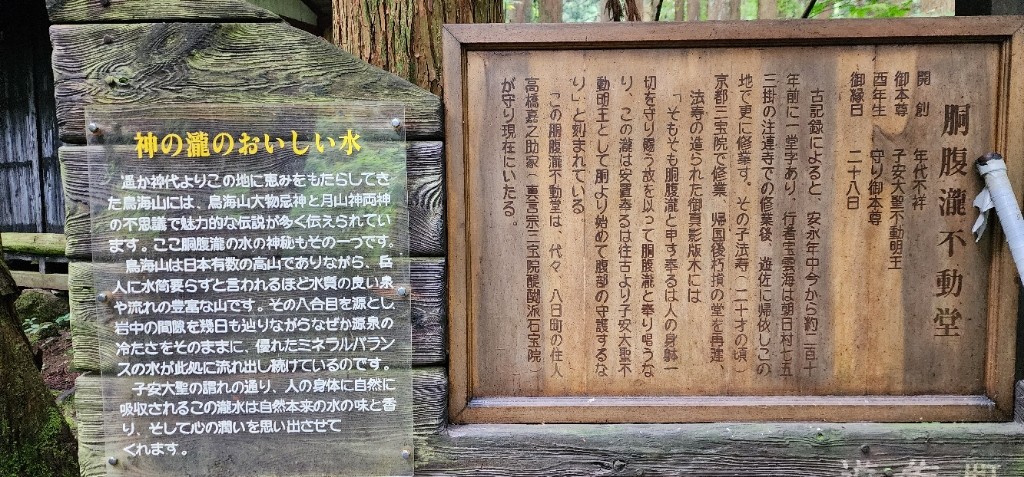 神の瀧のおいしい水
遥か神代よりこの地に恵みをもたらしてき
た鳥海山には、鳥海山大物忌神と月山神両神
の不思議で魅力的な伝説が多く伝えられてい
ます。ここ胴腹瀧の水の神秘もその一つです。
鳥海山は日本有数の高山でありながら、岳
人に水筒要らずと言われるほど水質の良い泉
や流れの豊富な山です。その八合目を源とし
岩中の間隙を幾日も辿りながらなぜか源泉の
冷たさをそのままに、優れたミネラルバラン
スの水が此処に流れ出し続けているのです。
子安大聖の謂れの通り、人の身体に自然に
吸収されるこの瀧水は自然本来の水の味と香
り、そして心の潤いを思い出させて
くれます。
胴腹瀧不動堂
開創 年代不祥
御本尊 子安大聖不動明王
酉年生 守り御本尊
御縁日 二十八日
古記録によると、安永年中今から約二百十
年前に一堂宇あり、行者宝雲海は朝日村七五
三掛の注連寺での修業後、遊佐に帰依しこの
地で更に修業す。その子法寿（二十才の頃）
京都三宝院で修業、帰国後朽損の堂を再建、
法寿の造られた御真影版木には
「そもそも胴腹瀧と申す奉るは人の身躰一
切を守り賜う故を以って胴腹瀧と奉り唱うな
り、この瀧は安置奉るは往古より子安大聖不
動明王として胴より始めて腹部の守護するな
り」と刻まれている
「この胴腹瀧不動堂は、代々、八日町の住人
高橋嘉之助家（真言宗三宝院醍醐派石宝院）
が守り現在にいたる。